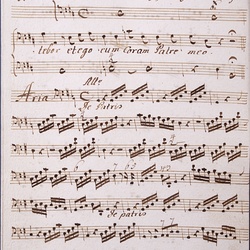 tebor et ego cum Coram Patre meo
Allo
Aria
Te Patris
6 7 6
Te patris
7 7